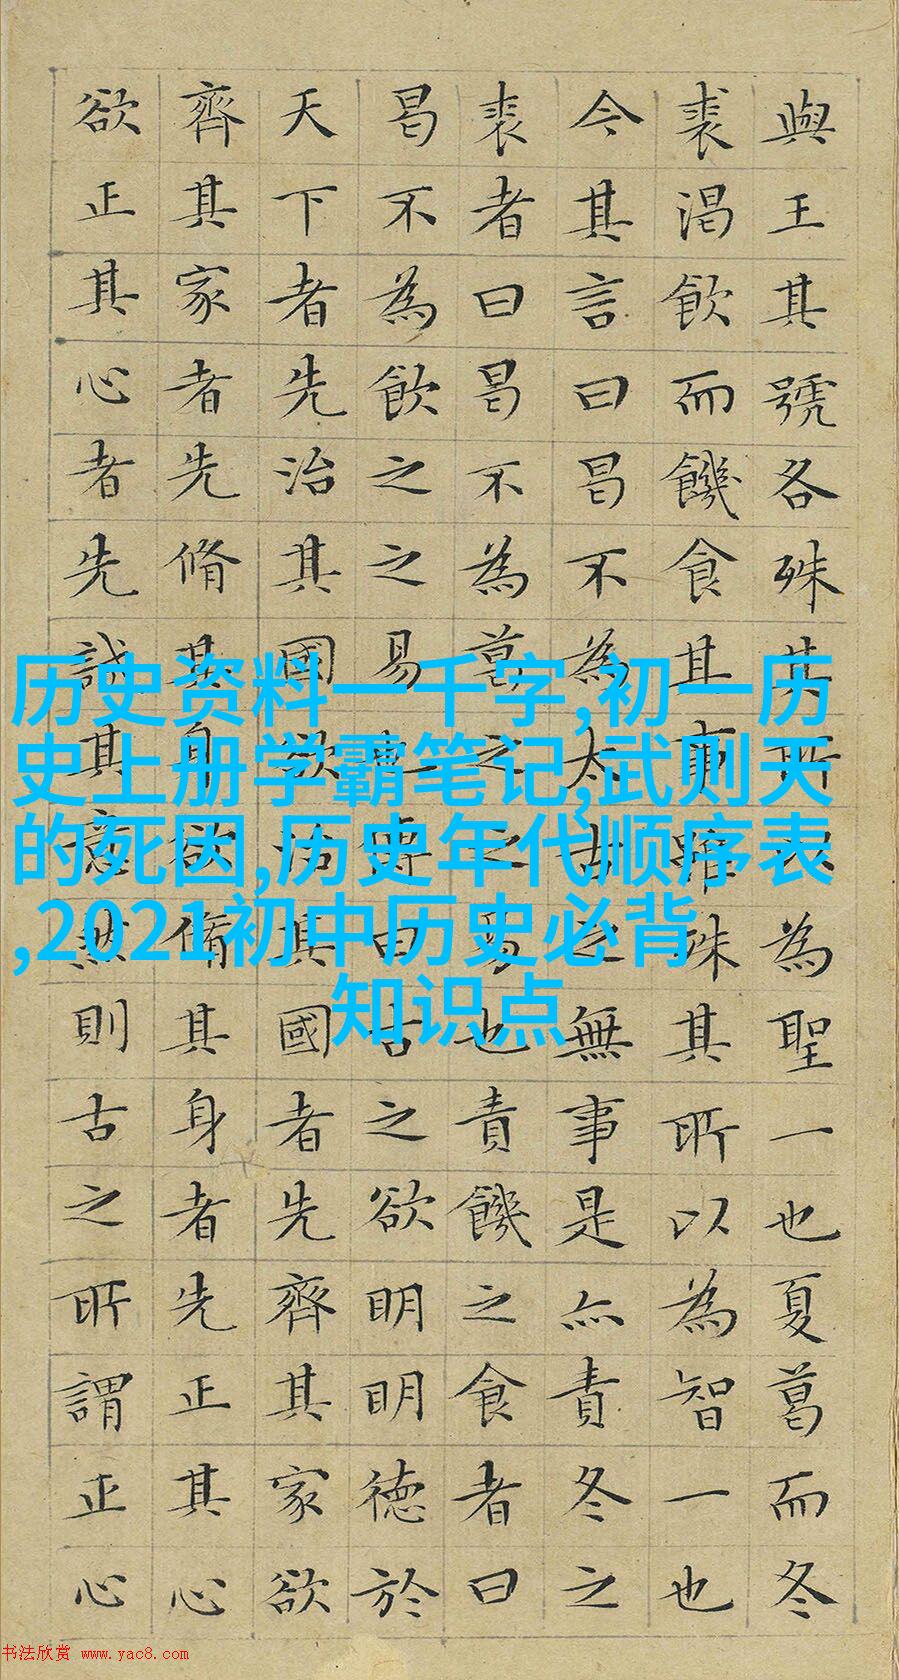 與王其號各殊其所以為聖一也夏葛而冬
裘渴飲而饑食其事雖殊其所以為智一也
今其言曰曷不為太古之無事是亦責冬之
裘者曰曷不為葛之之易也責饑之食者曰
曷不為飲之之易也傳曰古之欲明明德於
天下者先治其國欲治其國者先齊其家欲
齊其家者先脩其身欲脩其身者先正其心
欲正其心者先誠其意然則古之所謂正心
历史资料一千字,初一历
史上册学霸笔记,武则天
的死因,历史年代顺序表
,2021初中历史必背
知识点
书法欣赏 www.yac8.com